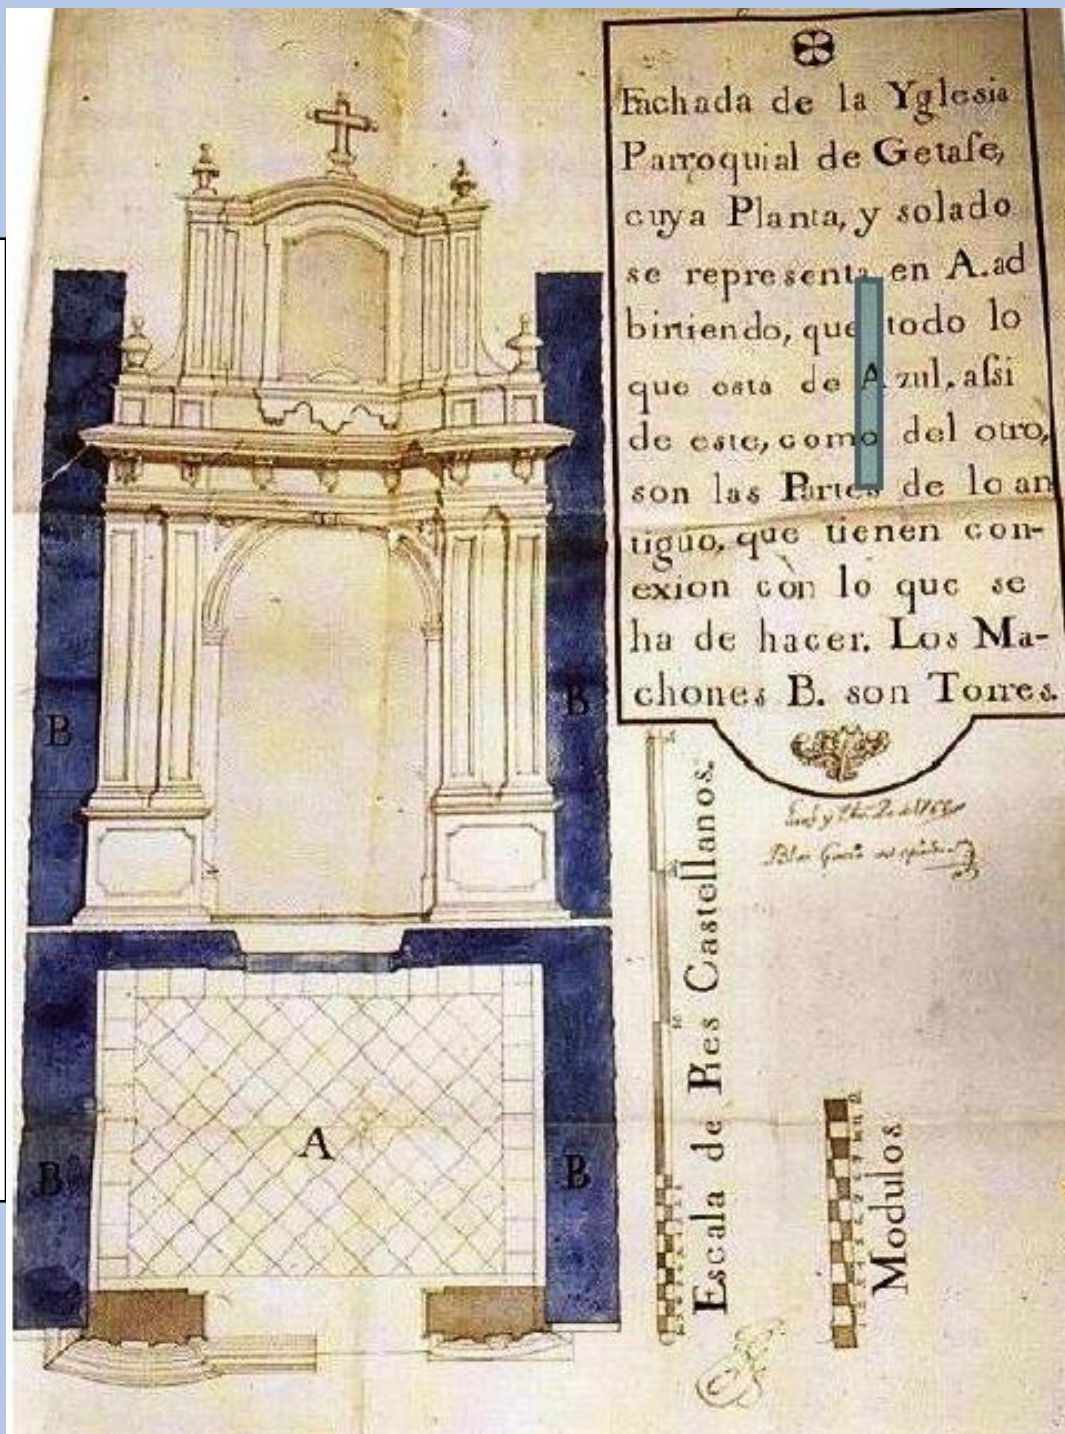 Fachada de la Yglesia
Parroquial de Getafe,
cuya Planta, y solado
se representa en A. ad
birtiendo, que todo lo
que esta de Azul, assi
de este, como del otro,
son las Partes de lo an
tiguo, que tienen con-
exion con lo que se
ha de hacer. Los Ma-
chones B. son Torres.
B
B
A
B
B
Escala de Pies Castellanos.
Modulos